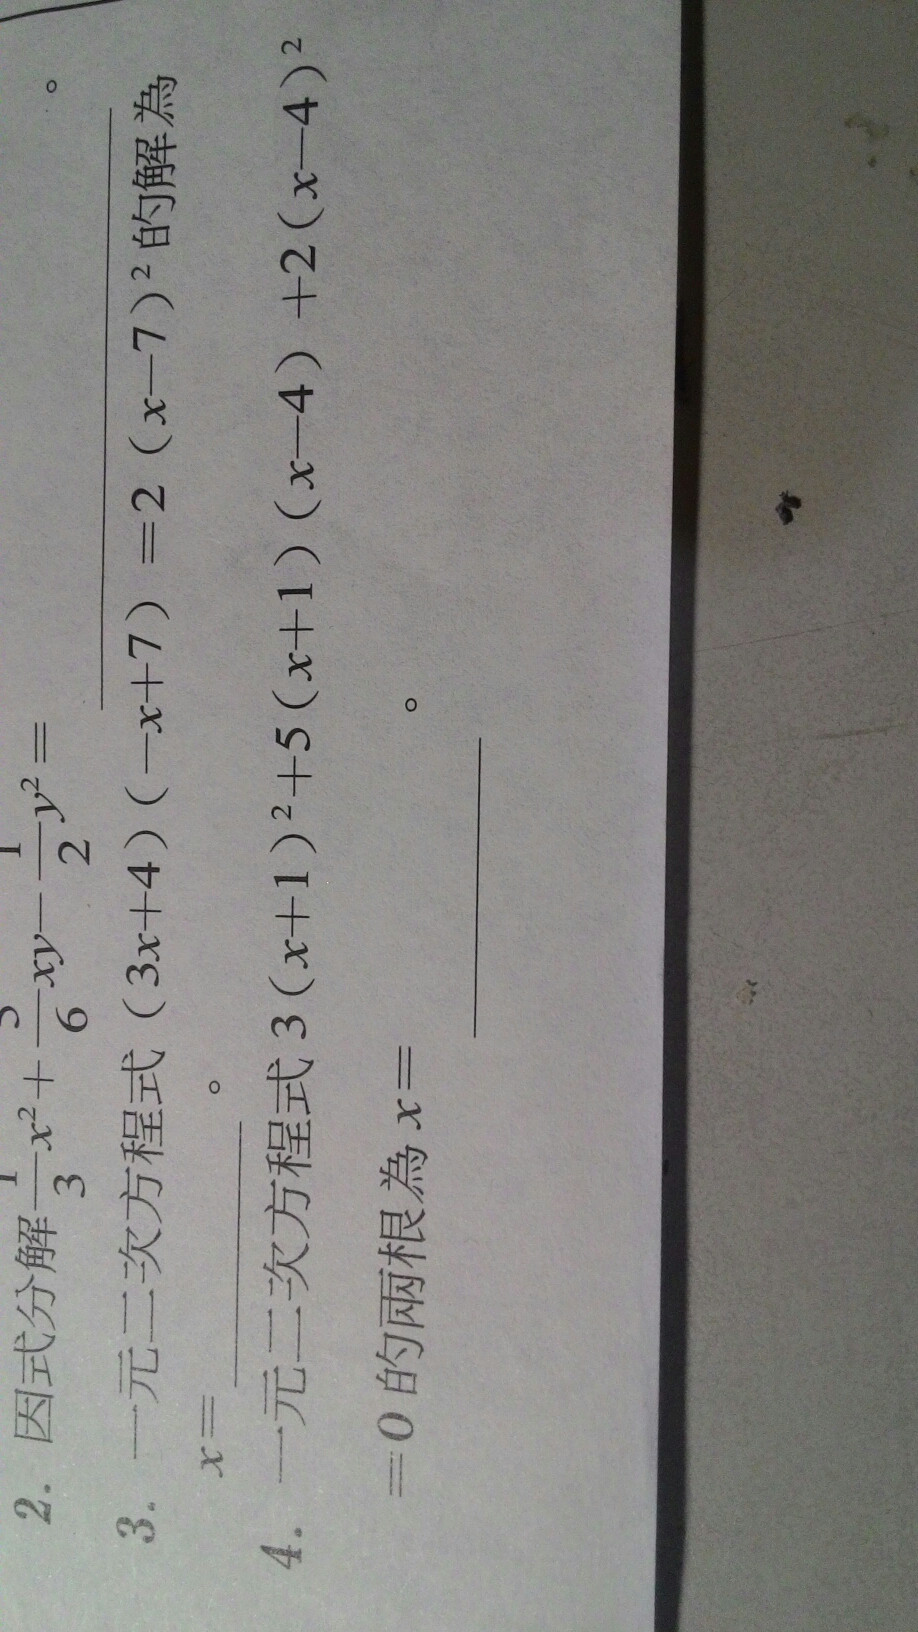 2. 因式分解 1/3 x²+ 5/6 xy− 1/2 y²= ＿＿＿＿＿＿。
3. 一元二次方程式（3x+4）（−x+7）=2（x−7）²的解為
x= ＿＿＿＿＿＿。
4. 一元二次方程式 3（x+1）²+5（x+1）（x−4）+2（x−4）²
=0 的兩根為 x= ＿＿＿＿＿＿。